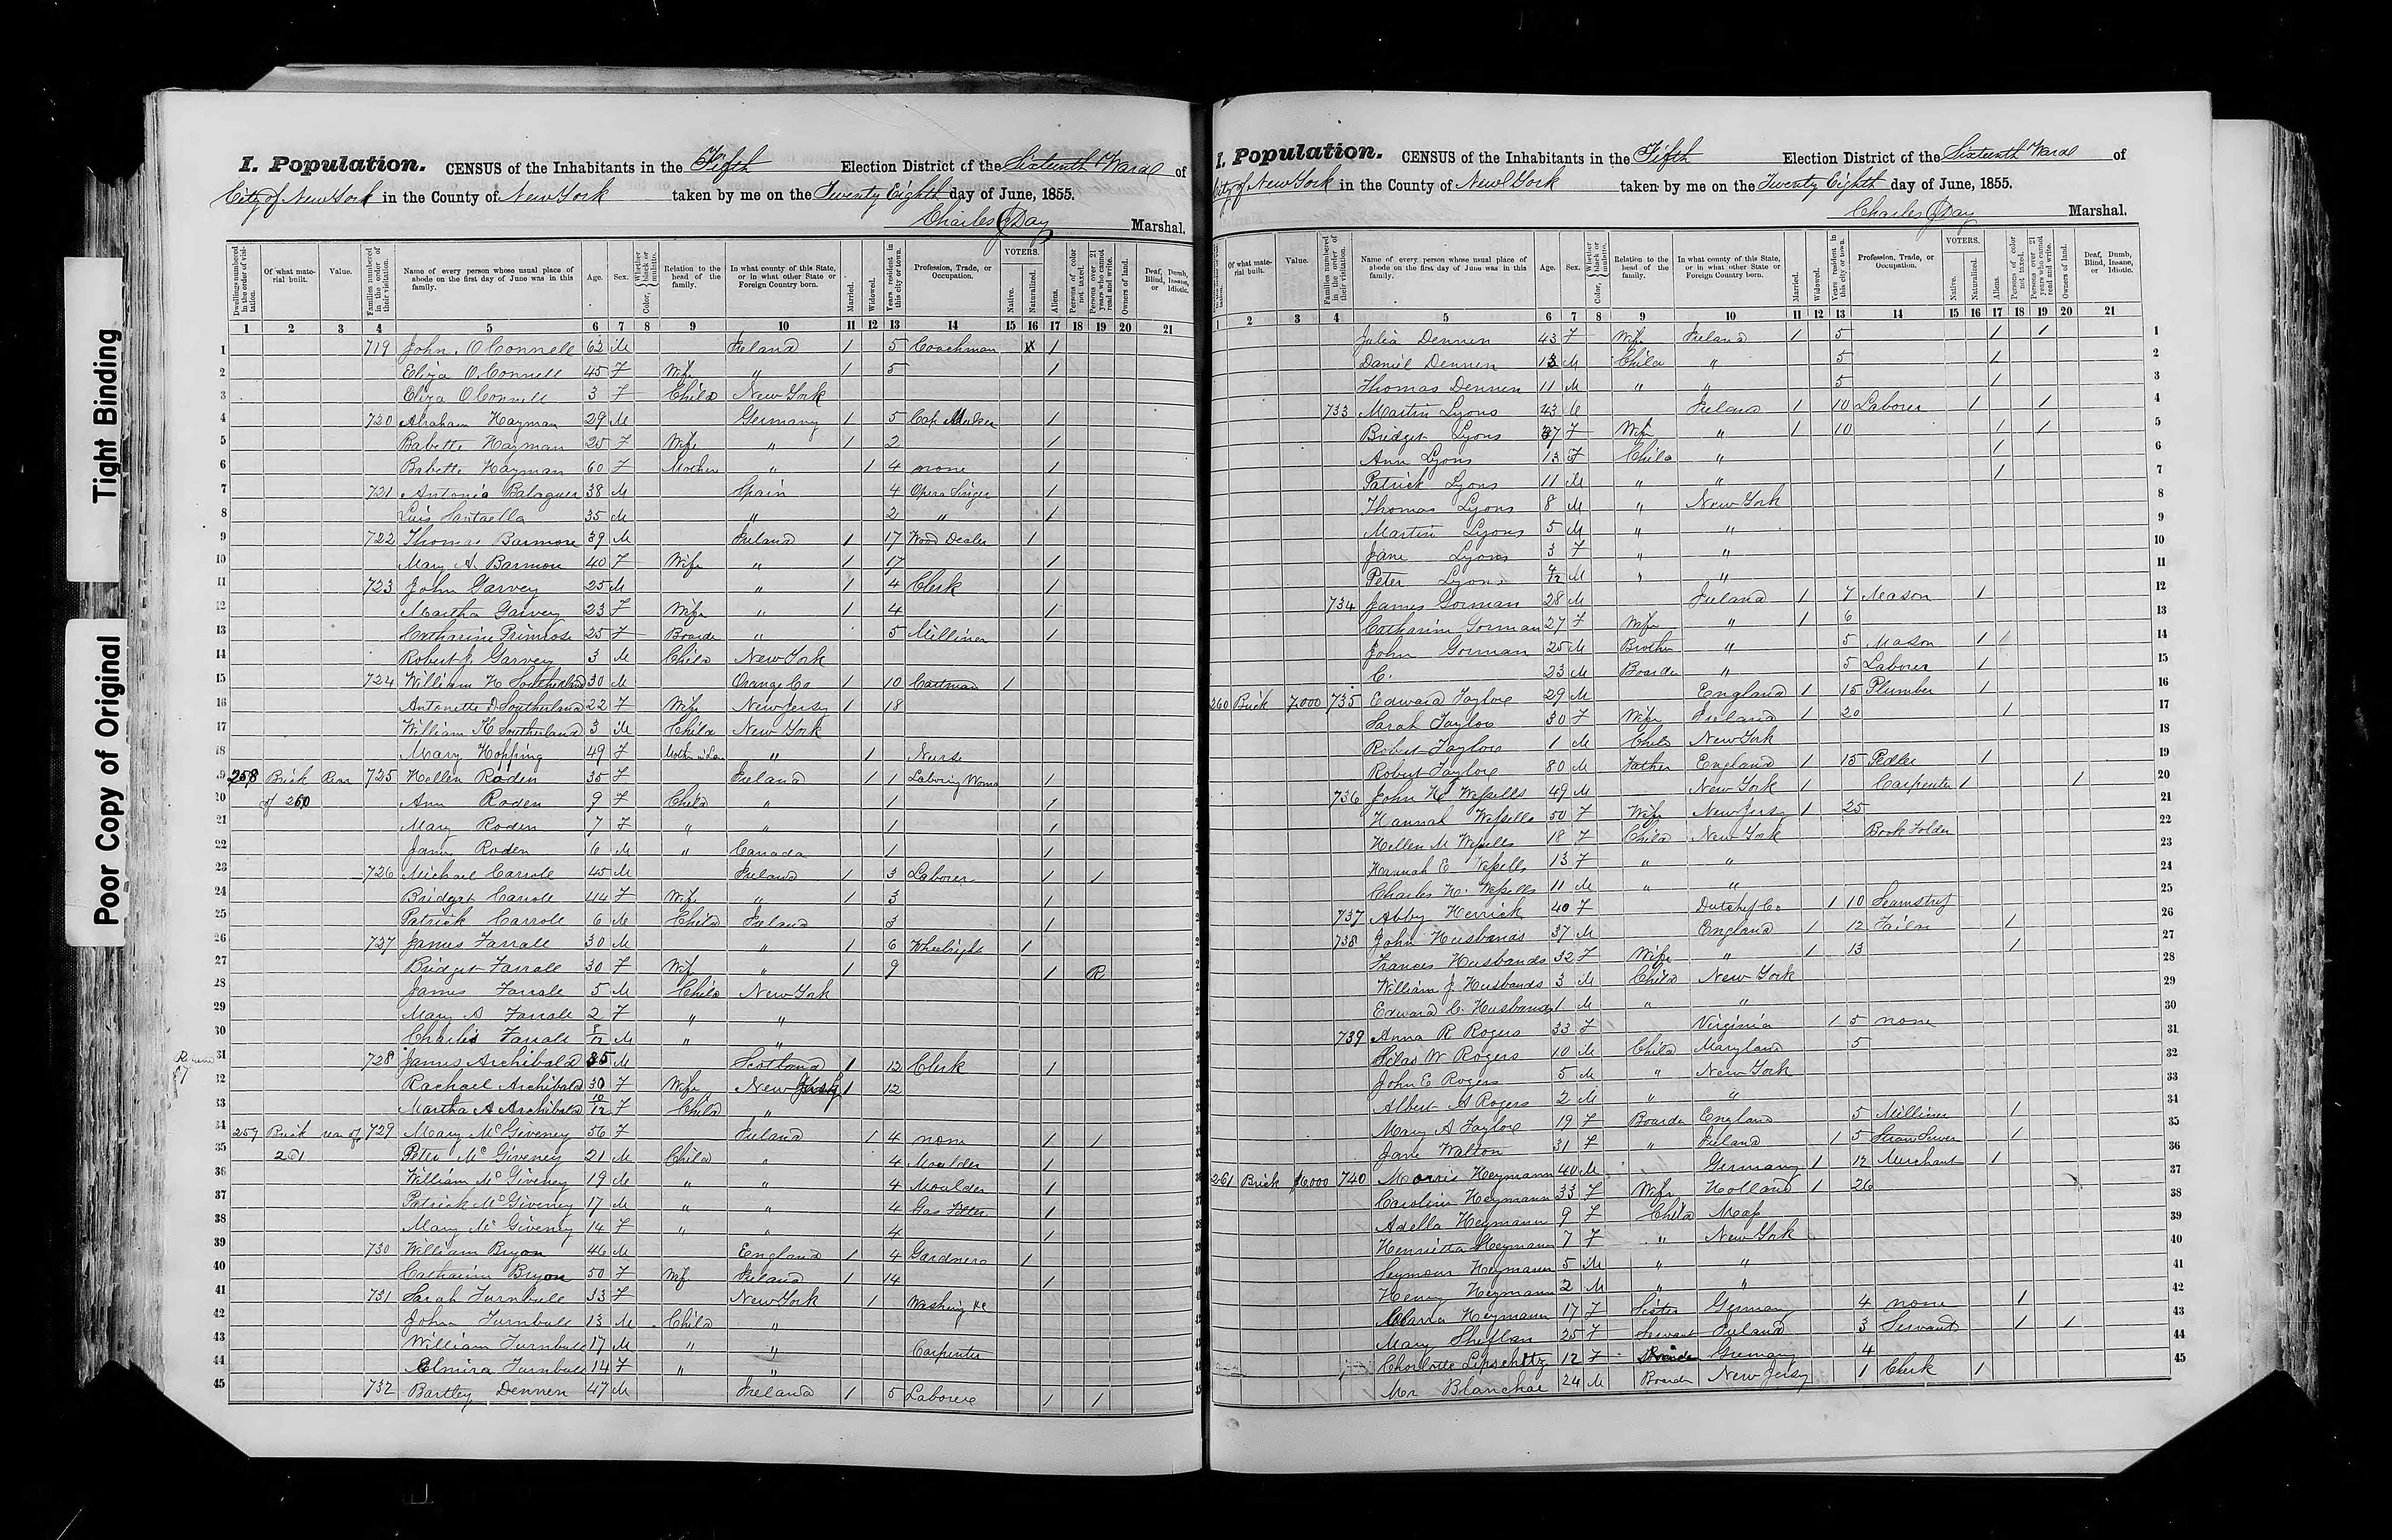 Tight Binding
Poor Copy of Original
I. Population. CENSUS of the Inhabitants in the Fifth Election District of the Sixteenth Ward of
City of New York in the County of New York taken by me on the Twenty Eighth day of June, 1855.
Charles Day Marshal.
Dwellings numbered in the order of visitation. Of what material built. Value. Families numbered in the order of their visitation. Name of every person whose usual place of abode on the first day of June was in this family. Age. Sex. Color, Whether black or mulatto. Relation to the head of the family. In what county of this State, or in what other State or Foreign Country born. Married. Widowed. Years resident in this city or town. Profession, Trade, or Occupation. VOTERS. Native. Naturalized. Aliens. Persons of color not taxed. Persons over 21 years who cannot read and write. Owners of land. Deaf, Dumb, Blind, Insane, or Idiotic.
1 2 3 4 5 6 7 8 9 10 11 12 13 14 15 16 17 18 19 20 21
1 719 John O Connell 62 M Ireland 1 5 Coachman 1
2 Eliza O Connell 45 F Wife " 1 5 1
3 Eliza O Connell 3 F Child New York
4 720 Abraham Hayman 29 M Germany 1 5 Cap Maker 1
5 Babette Hayman 25 F Wife " 1 2 1
6 Babette Hayman 60 F Mother " 1 4 none 1
7 721 Antonio Balaguer 38 M Spain 4 Opera Singer 1
8 Luis Santaella 35 M " 2 " 1
9 722 Thomas Barmore 39 M Ireland 1 17 Wood Dealer 1
10 Mary A. Barmore 40 F Wife " 1 17 1
11 723 John Garvey 25 M " 1 4 Clerk 1
12 Martha Garvey 23 F Wife " 1 4 1
13 Catharine Primrose 25 F Boarder " 5 Milliner 1
14 Robert J. Garvey 3 M Child New York
15 724 William H Southerland 30 M Orange Co 1 10 Cartman 1
16 Antonette D Southerland 22 F Wife New Jersey 1 18
17 William H Southerland 3 M Child New York
18 Mary Hopping 49 F Mother in Law " 1 Nurse
19 258 Brick Rear 725 Hellen Roden 35 F Ireland 1 1 Laboring Woman 1
20 of 260 Ann Roden 9 F Child " 1 1
21 Mary Roden 7 F " " 1 1
22 James Roden 6 M " Canada 1 1
23 726 Michael Carroll 45 M Ireland 1 3 Laborer 1 1
24 Bridget Carroll 44 F Wife " 1 3 1
25 Patrick Carroll 6 M Child Ireland 3 1
26 727 James Farrall 30 M " 1 6 Wheelright 1
27 Bridget Farrall 30 F Wife " 1 9 1 R
28 James Farrall 5 M Child New York
29 Mary A Farrall 2 F " "
30 Charles Farrall 8/12 M " "
31 728 James Archibald 35 M Scotland 1 12 Clerk 1
32 Rachael Archibald 30 F Wife New Jersey 1 12
33 Martha A Archibald 10/12 F Child "
34 259 Brick rear of 729 Mary McGiveney 56 F Ireland 1 4 none 1 1
35 261 Peter McGiveney 21 M Child " 4 Moulder 1
36 William McGiveney 19 M " " 4 Moulder 1
37 Patrick McGiveney 17 M " " 4 Gas Fitter 1
38 Mary McGiveney 14 F " " 4 1
39 730 William Bryon 46 M England 1 4 Gardner 1
40 Catharine Bryon 50 F Wife Ireland 1 14 1
41 731 Sarah Turnbull 33 F New York 1 Washing &c
42 John Turnbull 13 M Child "
43 William Turnbull 17 M " " Carpenter
44 Elmira Turnbull 14 F " "
45 732 Bartley Dennen 47 M Ireland 1 5 Laborer 1 1
I. Population. CENSUS of the Inhabitants in the Fifth Election District of the Sixteenth Ward of
City of New York in the County of New York taken by me on the Twenty Eighth day of June, 1855.
Charles Day Marshal.
Of what material built. Value. Families numbered in the order of their visitation. Name of every person whose usual place of abode on the first day of June was in this family. Age. Sex. Color, Whether black or mulatto. Relation to the head of the family. In what county of this State, or in what other State or Foreign Country born. Married. Widowed. Years resident in this city or town. Profession, Trade, or Occupation. VOTERS. Native. Naturalized. Aliens. Persons of color not taxed. Persons over 21 years who cannot read and write. Owners of land. Deaf, Dumb, Blind, Insane, or Idiotic.
1 2 3 4 5 6 7 8 9 10 11 12 13 14 15 16 17 18 19 20 21
Julia Dennen 43 F Wife Ireland 1 5 1 1 1
Daniel Dennen 13 M Child " 5 1 2
Thomas Dennen 11 M " " 5 1 3
733 Martin Lyons 43 M Ireland 1 10 Laborer 1 1 4
Bridget Lyons 37 F Wife " 1 10 1 1 5
Ann Lyons 13 F Child " 1 6
Patrick Lyons 11 M " " 1 7
Thomas Lyons 8 M " New York 8
Martin Lyons 5 M " " 9
Jane Lyons 3 F " " 10
Peter Lyons 4/12 M " " 11
734 James Gorman 28 M Ireland 1 7 Mason 1 12
Catharine Gorman 27 F Wife " 1 6 13
John Gorman 25 M Brother " 5 Mason 1 14
C. 23 M Boarder " 5 Laborer 1 15
260 Brick 7,000 735 Edward Taylor 29 M England 1 15 Plumber 1 16
Sarah Taylor 30 F Wife Ireland 1 20 1 17
Robert Taylor 1 M Child New York 18
Robert Taylor 80 M Father England 1 15 Pedler 1 19
736 John H Wessells 49 M New York 1 Carpenter 1 1 20
Hannah Wessells 50 F Wife New Jersey 1 25 21
Hellen M Wessells 18 F Child New York Book Folder 22
Hannah E Wessells 13 F " " 23
Charles H. Wessells 11 M " " 24
737 Abby Herrick 40 F Dutchess Co 1 10 Seamstress 25
738 John Husbands 37 M England 1 12 Tailor 1 26
Frances Husbands 32 F Wife " 1 13 1 27
William J Husbands 3 M Child New York 28
Edward C. Husbands 1 M " " 29
739 Anna R Rogers 33 F Virginia 1 5 none 30
Silas W Rogers 10 M Child Maryland 5 31
John E Rogers 5 M " New York 32
Albert A Rogers 2 M " " 33
Mary A Taylor 19 F Boarder England 5 Milliner 1 34
Jane Walton 31 F " Ireland 1 5 Straw Sewer 1 35
261 Brick 16,000 740 Morris Heymann 40 M Germany 1 12 Merchant 1 36
Caroline Heymann 33 F Wife Holland 1 26 37
Adella Heymann 9 F Child Mass 38
Henrietta Heymann 7 F " New York 39
Seymour Heymann 5 M " " 40
Henry Heymann 2 M " " 41
Clara Heymann 17 F Sister Germany 4 none 1 42
Mary Shetlan 25 F Servant Ireland 3 Servant 1 1 43
Charlotte Lipschitz 12 F Germany 4 44
Mr Blanchae 24 M Boarder New Jersey 1 Clerk 1 45